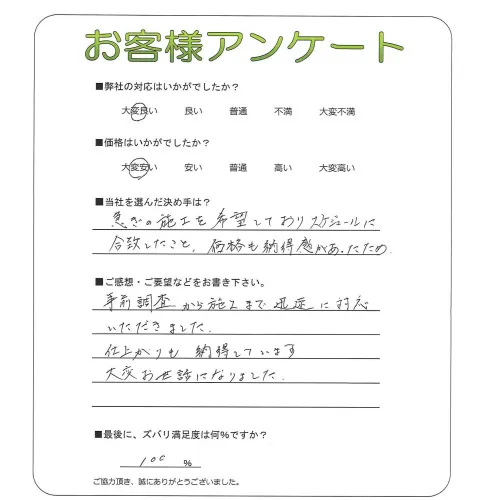 お客様アンケート
■弊社の対応はいかがでしたか？
大変良い 良い 普通 不満 大変不満
■価格はいかがでしたか？
大変安い 安い 普通 高い 大変高い
■当社を選んだ決め手は？
急ぎの施工を希望しておりスケジュールに
合致したこと、価格も納得感があったため.
■ご感想・ご要望などをお書き下さい。
事前調査から施工まで迅速に対応
いただきました.
仕上がりも納得しています
大変お世話になりました.
■最後に、ズバリ満足度は何%ですか？
100 %
ご協力頂き、誠にありがとうございました。